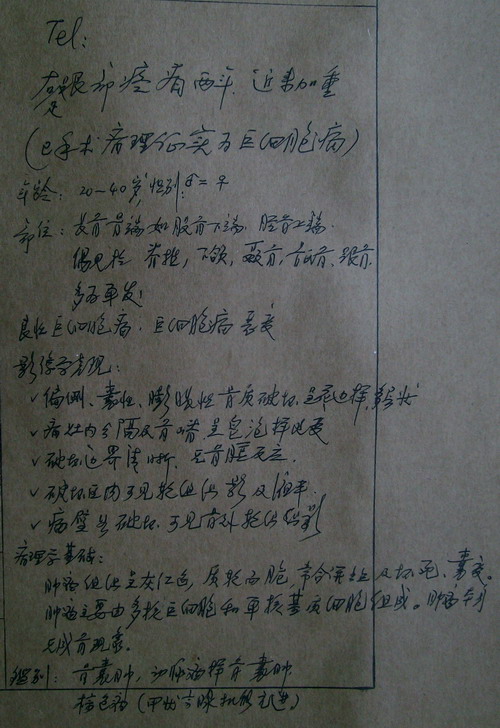 Tel:
右足跟部疼痛两年,近来加重
(已手术病理证实为巨细胞瘤)
年龄:20~40岁,性别:♂=♀
部位:长骨骨端如股骨下端,胫骨上端.
偶见于脊椎,下颌,骶骨,跟骨,
多为单发!
良性巨细胞瘤.巨细胞瘤囊变
影像学表现:
✓偏侧、囊性、膨胀性骨质破坏,
✓病灶内分隔及骨嵴呈皂泡样改变
✓破坏边界清晰,无骨膜反应.
✓破坏区内可见软组织影及
✓病壁 破坏,可见骨外软组织影
病理学基础:
肿瘤组织呈灰红色,质软而脆,常合并出血及坏死、囊变。
肿瘤主要由多核巨细胞和单核基质细胞组成。肿瘤
无成骨现象。
鉴别:骨囊肿,动脉瘤样骨囊肿
棕色瘤(甲状旁腺机能亢进)